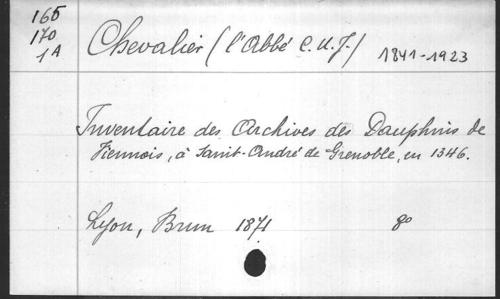 165
170
1A
Chevalier (l'Abbé C. U. J.) 1841-1923
Inventaire des Archives des Dauphins de
Viennois, à Saint-André de Grenoble, en 1346.
Lyon, Brun 1871 8o